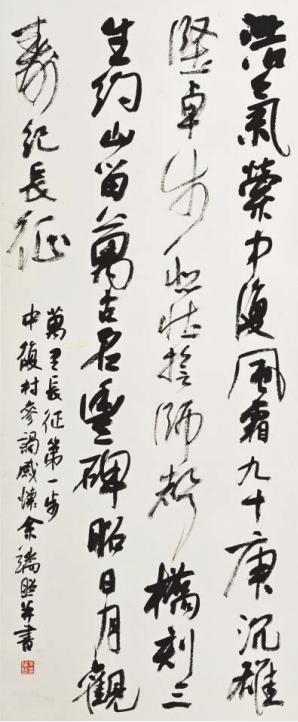 浩氣縈中復風霜九十庚沉雄
堅卓步悲壯誓師聲橋刻三
生約山留萬古名豐碑昭日月觀
壽紀長征
萬里長征第一步
中復村參謁感懷余端照并書